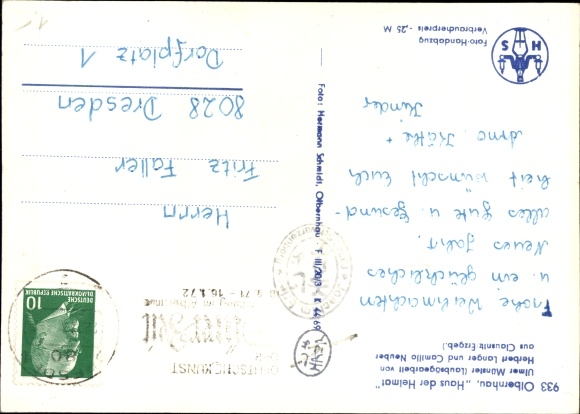 933 Olbernhau, „Haus der Heimat"
Ulmer Münster (Laubsägearbeit von
Herbert Langer und Camillo Neuber
aus Clausnitz Erzgeb.)
Frohe Weihnachten
u. ein glückliches
Neues Jahr,
alles Gute u. Gesund-
heit wünscht Euch
Arno, Käthe +
Kinder
H S
Foto-Handabzug
Verbraucherpreis -,25 M
Foto: Hermann Schmidt, Olbernhau F III/2013 K 44/69
DEUTSCHE KUNST
71 - 16.1.72
10
DEUTSCHE
DEMOKRATISCHE REPUBLIK
Herrn
Fritz Faller
8028 Dresden
Dorfplatz 1